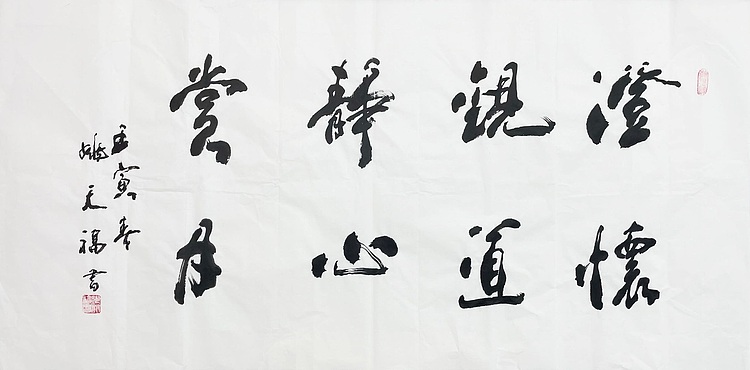 澄懷
觀道
靜心
賞月
壬寅春
姚天福書